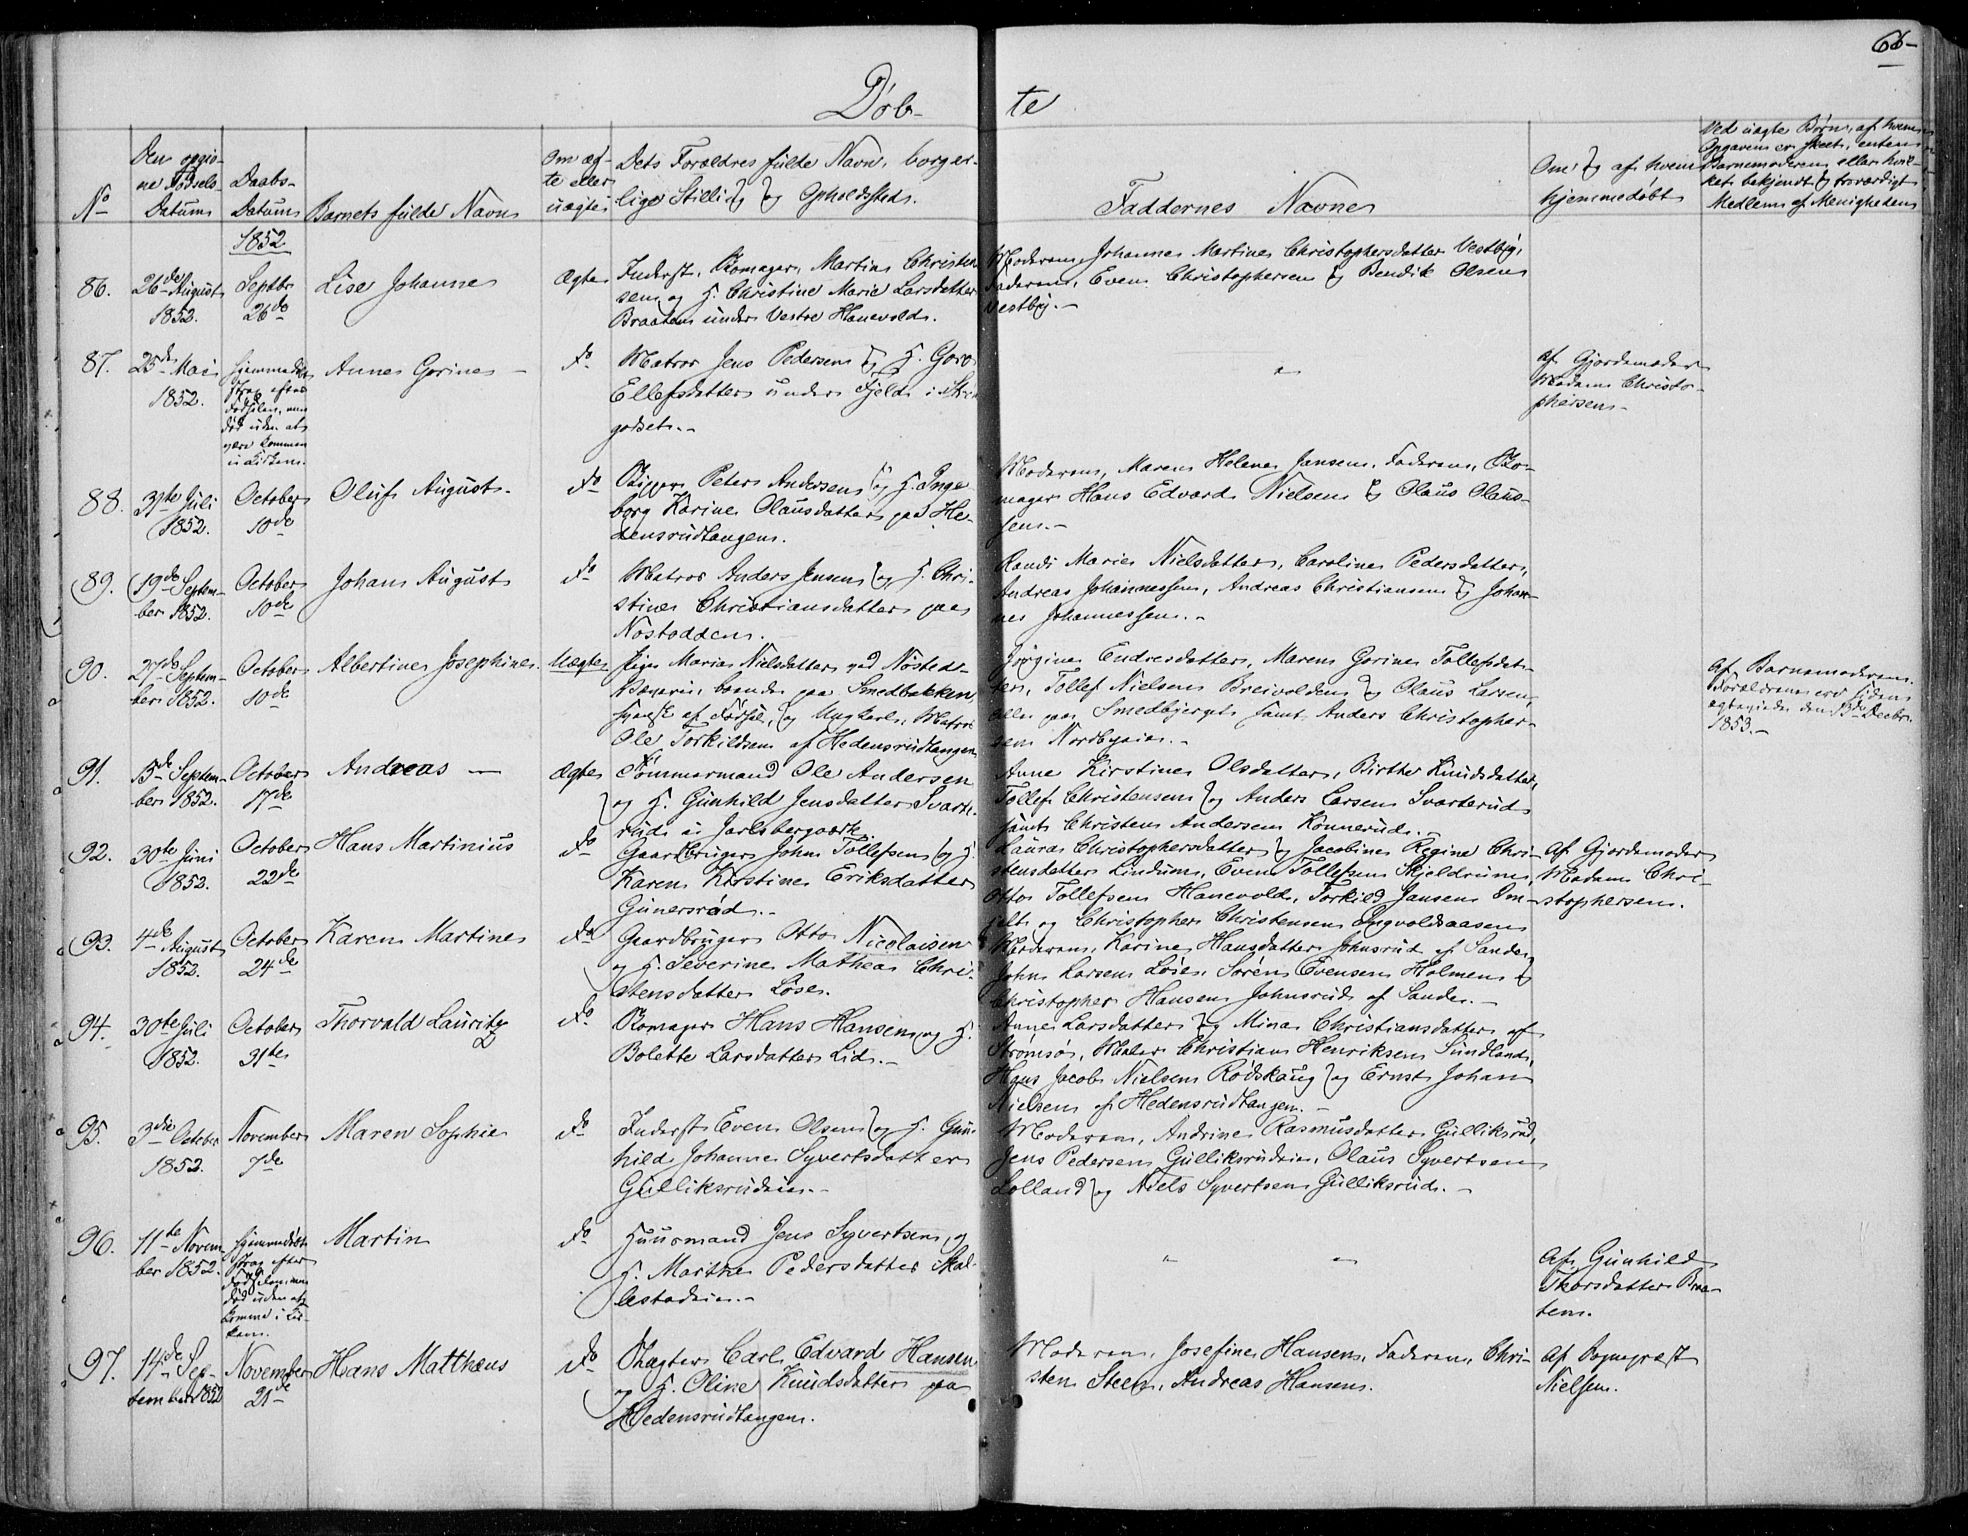 66-
Døb-
te
No
Den opgiv-
ne Fødsels
Datum
Daabs-
Datum
Barnets fulde Navn
Om æg-
te eller
uægte
Dets Forældres fulde Navn, borger-
lige Stilling og Opholdssted.
Faddernes Navne
Om og af hvem
hjemmedøbt
Ved uægte Børn, af hvem
Opgaven er skeet, enten
Barnemoderen eller hvil-
ket bekjendt og troværdigt
Medlem af Menigheden
1852
86.
26de August
1852.
Septbr
26de
Lise Johanne
Ægte
Inderst, Skomager, Martin Christen
sen og H. Christine Marie Larsdatter
Braaten under Vestre Hanevold.
Moderen, Johanne Martine Christophersdatter Vestby,
Faderen, Even Christophersen og Bendik Olsen
Vestby.-
87.
25de Mai
1852.
hjemmedøbt
strax efter
Fødselen, men
død uden at
være kommen
i Kirken.
Anne Gorine -
do
Matros Jens Pedersen og H. Goro
Ellefsdatter under Fjeld i
godset.-
"
Af Gjordemoder
Madame Christo-
phersen-
88.
31te Juli
1852.
October
10de
Oluf August.
do
Rigger Peter Andersen og H. Inge
borg Karine Olausdatter paa He-
densrudtangen.
Moderen, Maren Helene Jansen, Faderen, Sko-
mager Hans Edvard Nielsen og Olaus Olaus-
sen.-
89.
19de Septem-
ber 1852.
October
10de
Johan August
do
Matros Anders Jensen og H. Chri-
stine Christiansdatter paa
Nøstodden.
Randi Marie Nielsdatter, Caroline Pedersdatter,
Andreas Johannessen, Andreas Christiansen og Johan-
nes Johannessen.-
90.
27de Septem-
ber 1852.
October
10de
Albertine Josephine.
Uægte
Pige Marie Nielsdatter ved Nøsted-
boende paa Smedbakken,
af Fødsel, og Ungkarl, Matros
Ole Torkildsen af Hedensrudtangen
Jørgine Endresdatter, Maren Gorine Tollefsdat-
ter, Tollef Nielsen Breivolden og Olaus Larsen,
alle paa Smedbjerget samt Anders Christopher-
sen Nordbyeie.-
Af Barnemoderen.
Forældrene ere siden
ægteviede den 13de Decbr.
1853.-
91.
15de Septem-
ber 1852.
October
17de
Andreas -
Ægte
Tømmermand Ole Andersen
og H. Gunhild Jensdatter Svarte-
rud i Jarlsbergværk.
Anne Kirstine Olsdatter, Birthe Knudsdatter,
Tollef Christensen og Anders Larsen Svarterud
samt Christen Andersen Konnerud.-
92.
30te Juni
1852.
October
22de
Hans Martinius
do
Gaardbruger John Tollefsen og H.
Karen Kirstine Eriksdatter
Gunersrød.-
Laura Christophersdatter og Jacobine Regine Chri-
stensdatter Lindum, Even Tollefsen Skjeldrum,
Otto Tollefsen Hanevold, Torkild Jansen Om-
og Christopher Christensen Ingvoldsaasen
Af Gjordemoder
Madame Chri-
stophersen.
93.
4de August
1852.
October
24de
Karen Martine
do
Gaardbruger Otto Nicolaisen
og H. Severine Mathea Chri-
stensdatter Løse.
Moderen, Karine Hansdatter Johnsrud af Sande,
John Larsen Løse, Søren Evensen Holmen og
Christopher Hansen Johnsrud af Sande.-
94.
30te Juli
1852.
October
31te
Thorvald Lauritz
do
Skomager Hans Hansen og H.
Bolette Larsdatter Lid.-
Anne Larsdatter og Mina Christiansdatter af
Strømsø, Maler Christian Henriksen Sundland,
Hans Jacob Nielsen Rødskaug og Ernst Johan
Nielsen af Hedensrudtangen.-
95.
3die October
1852.
November
7de
Maren Sophie
do
Inderst Even Olsen og H. Gun-
hild Johanne Syvertsdatter
Gulliksrudeie.-
Moderen, Andrine Rasmusdatter Gulliksrud,
Jens Pedersen Gulliksrudeie, Olaus Syvertsen
Lolland og Niels Syvertsen Gulliksrud.-
96.
11te Novem
ber 1852.
hjemmedøbt
strax efter
Fødselen, men
død uden at
komme i Kir-
ken.
Martin
do
Huusmand Jens Syvertsen og
H. Marthe Pedersdatter Skal-
lestadeie.-
" "
Af Gunhild
Thorsdatter Braa-
ten.
97.
14de Sep-
tember 1852
November
21de
Hans Matthæus
do
Slagter Carl Edvard Hansen
og H. Oline Knudsdatter paa
Hedensrudtangen.
Moderen, Josefine Hansen, Faderen, Chri-
sten Steen, Andreas Hansen.
Af Sognepræst
Nielsen.